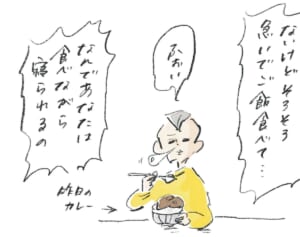 ないけどそろそろ
急いでご飯食べて…
ひおい
なんであなたは
食べながら
寝られるの
昨日の
カレー